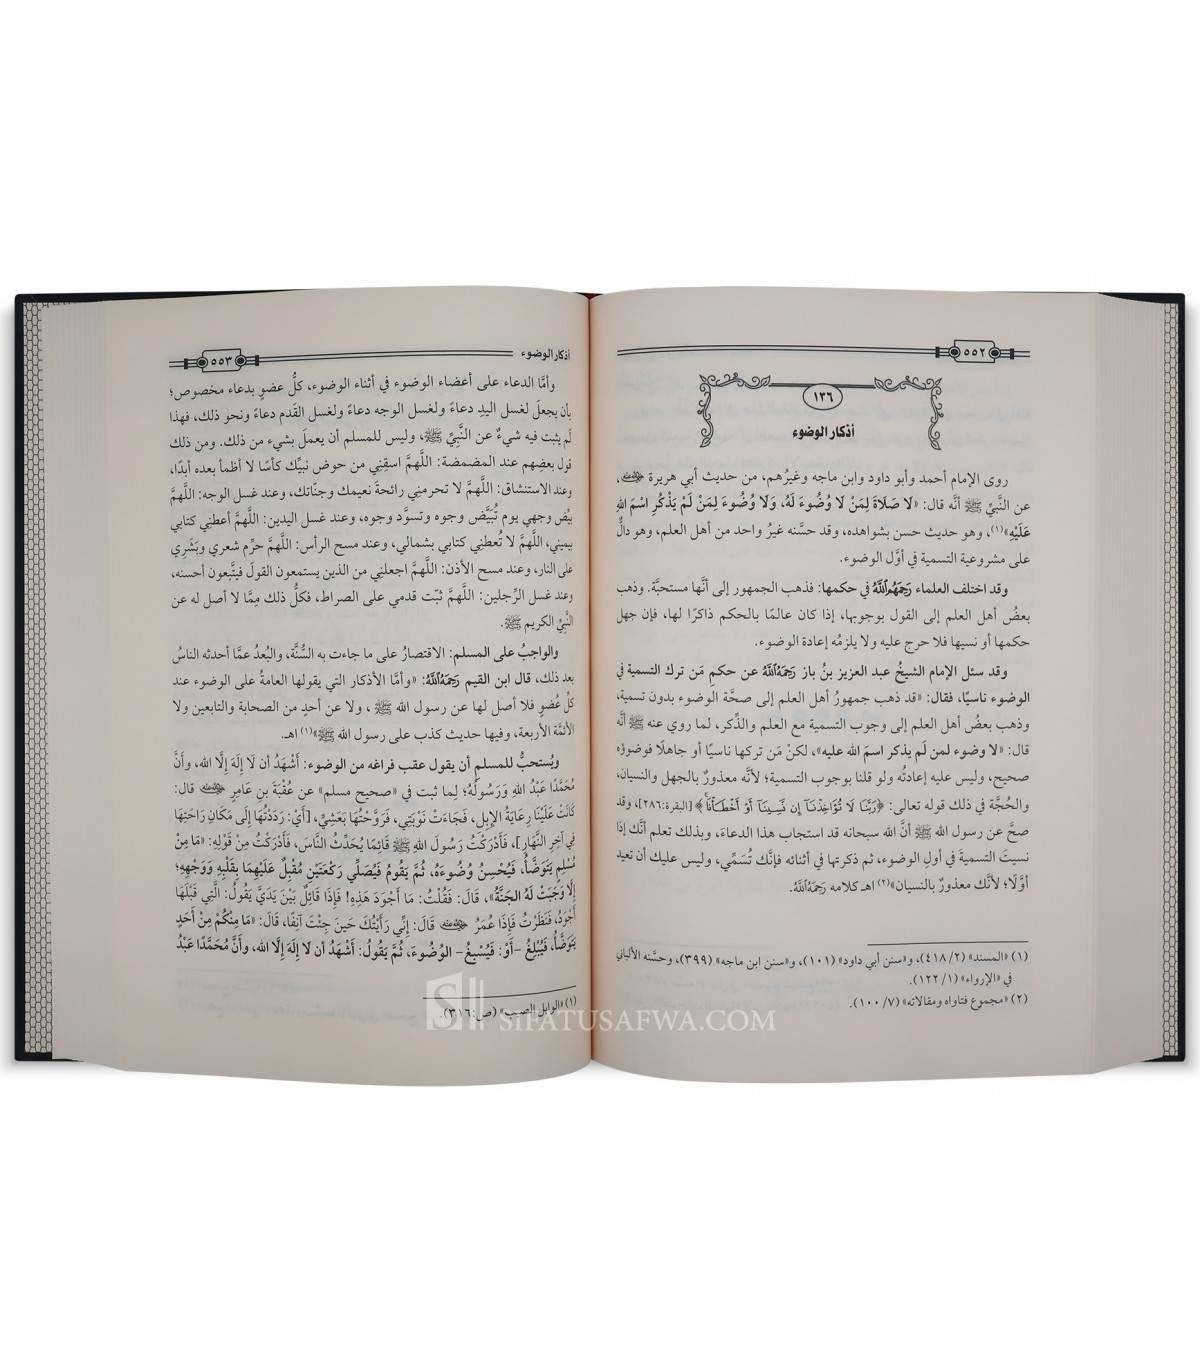 ٥٥٢
١٣٦
أذكار الوضوء
روى الإمام أحمد وأبو داود وابن ماجه وغيرُهم، من حديث أبي هريرة رضي الله عنه،
عن النَّبيِّ ﷺ أنَّه قال: «لَا صَلَاةَ لِمَنْ لَا وُضُوءَ لَهُ، وَلَا وُضُوءَ لِمَنْ لَمْ يَذْكُرِ اسْمَ اللهِ
عَلَيْهِ»(١)، وهو حديث حسن بشواهده، وقد حسَّنه غيرُ واحد من أهل العلم، وهو دالٌّ
على مشروعية التسمية في أوَّل الوضوء.
وقد اختلف العلماء رَحِمَهُمُ اللَّهُ في حكمها: فذهب الجمهور إلى أنَّها مستحبَّة. وذهب
بعضُ أهل العلم إلى القول بوجوبها، إذا كان عالمًا بالحكم ذاكرًا لها، فإن جهل
حكمها أو نسيها فلا حرج عليه ولا يلزمُه إعادة الوضوء.
وقد سئل الإمام الشيخُ عبد العزيز بنُ باز رَحِمَهُ اللَّهُ عن حكم مَن ترك التسمية في
الوضوء ناسيًا، فقال: «قد ذهب جمهورُ أهل العلم إلى صحَّة الوضوء بدون تسمية،
وذهب بعضُ أهل العلم إلى وجوب التسمية مع العلم والذِّكر، لما روي عنه ﷺ أنَّه
قال: «لا وضوء لمن لَم يذكر اسمَ الله عليه»، لكنْ مَن تركها ناسيًا أو جاهلًا فوضوؤه
صحيح، وليس عليه إعادتُه ولو قلنا بوجوب التسمية؛ لأنَّه معذورٌ بالجهل والنسيان،
والحُجَّة في ذلك قوله تعالى: ﴿رَبَّنَا لَا تُؤَاخِذْنَآ إِن نَّسِينَآ أَوْ أَخْطَأْنَا﴾ [البقرة:٢٨٦]، وقد
صحَّ عن رسول الله ﷺ أنَّ الله سبحانه قد استجاب هذا الدعاءَ، وبذلك تعلم أنَّك إذا
نسيتَ التسمية في أولِ الوضوء، ثم ذكرتها في أثنائه فإنَّك تُسَمِّي، وليس عليك أن تعيد
أوَّلًا؛ لأنَّك معذورٌ بالنسيان»(٢) اهـ كلامه رَحِمَهُ اللَّهُ.
(١) «المسند» (٤١٨/٢)، و«سنن أبي داود» (١٠١)، و«سنن ابن ماجه» (٣٩٩)، وحسَّنه الألباني
في «الإرواء» (١٢٢/١).
(٢) «مجموع فتاواه ومقالاته» (١٠٠/٧).
أذكار الوضوء
٥٥٣
وأمَّا الدعاء على أعضاء الوضوء في أثناء الوضوء، كلُّ عضوٍ بدعاء مخصوص؛
بأن يجعلَ لغسل اليدِ دعاءً ولغسل الوجه دعاءً ولغسل القَدم دعاءً ونحو ذلك، فهذا
لَم يثبت فيه شيءٌ عن النَّبيِّ ﷺ، وليس للمسلم أن يعملَ بشيء من ذلك. ومن ذلك
قول بعضِهم عند المضمضة: اللَّهمَّ اسقِنِي من حوض نبيِّك كأسًا لا أظمأُ بعده أبدًا،
وعند الاستنشاق: اللَّهمَّ لا تحرمنِي رائحةَ نعيمك وجنَّاتك، وعند غسل الوجه: اللَّهمَّ
بيِّض وجهي يوم تُبيَّض وجوه وتسوَّد وجوه، وعند غسل اليدين: اللَّهمَّ أعطنِي كتابي
بيمينِي، اللَّهمَّ لا تُعطنِي كتابي بشمالي، وعند مسح الرأس: اللَّهمَّ حرِّم شعري وبَشَرِي
على النار، وعند مسح الأذن: اللَّهمَّ اجعلنِي من الذين يستمعون القولَ فيتَّبعون أحسنه،
وعند غسل الرِّجلين: اللَّهمَّ ثبّت قدمي على الصراط، فكلُّ ذلك مِمَّا لا أصل له عن
النَّبيِّ الكريم ﷺ.
والواجبُ على المسلم: الاقتصارُ على ما جاءت به السُّنَّة، والبُعدُ عمَّا أحدثه الناسُ
بعد ذلك، قال ابن القيم رَحِمَهُ اللَّهُ: «وأمَّا الأذكار التي يقولها العامةُ على الوضوء عند
كلِّ عُضوٍ فلا أصل لها عن رسول الله ﷺ، ولا عن أحدٍ من الصحابة والتابعين ولا
الأئمَّة الأربعة، وفيها حديث كذب على رسول الله ﷺ»(١) اهـ.
ويُستحبُّ للمسلمِ أن يقول عقب فراغه من الوضوء: أَشْهَدُ أن لَا إِلَهَ إِلَّا الله، وأنَّ
مُحَمَّدًا عَبْدُ اللهِ وَرَسُولُهُ؛ لِما ثبت في «صحيح مسلم» عن عُقْبَةَ بنِ عَامِرٍ رضي الله عنه قال:
كَانَتْ عَلَيْنَا رِعَايَةُ الإِبِل، فَجَاءَتْ نَوْبَتِي، فَرَوَّحْتُهَا بَعَشِيٍّ، [أَيْ: رَدَدْتُهَا إِلَى مَكَانِ رَاحَتِهَا
فِي آخِرِ النَّهَارِ]، فَأَدْرَكْتُ رَسُولَ اللهِ ﷺ قَائِمًا يُحَدِّثُ النَّاسَ، فَأَدْرَكْتُ مِنْ قَوْلِهِ: «مَا مِنْ
مُسْلِمٍ يَتَوَضَّأُ، فَيُحْسِنُ وُضُوءَهُ، ثُمَّ يَقُومُ فَيُصَلِّي رَكْعَتَيْنِ مُقْبِلٌ عَلَيْهِمَا بِقَلْبِهِ وَوَجْهِهِ؛
إِلَّا وَجَبَتْ لَهُ الجَنَّةُ»، قَالَ: فَقُلْتُ: مَا أَجْوَدَ هَذِهِ! فَإِذَا قَائِلٌ بَيْنَ يَدَيَّ يَقُولُ: الَّتِي قَبْلَهَا
أَجْوَدُ، فَنَظَرْتُ فَإِذَا عُمَرُ رضي الله عنه قَالَ: إِنِّي رَأَيْتُكَ حَينَ جِئْتَ آنِفًا، قَالَ: «مَا مِنْكُمْ مِنْ أَحَدٍ
يَتَوَضَّأُ، فَيُبْلِغُ -أَوْ: فَيُسْبِغُ- الوُضُوءَ، ثُمَّ يَقُولُ: أَشْهَدُ أن لَا إِلَهَ إِلَّا الله، وأنَّ مُحَمَّدًا عَبْدُ
(١) «الوابل الصيب» (ص:٣١٦).
SIFATUSAFWA.COM